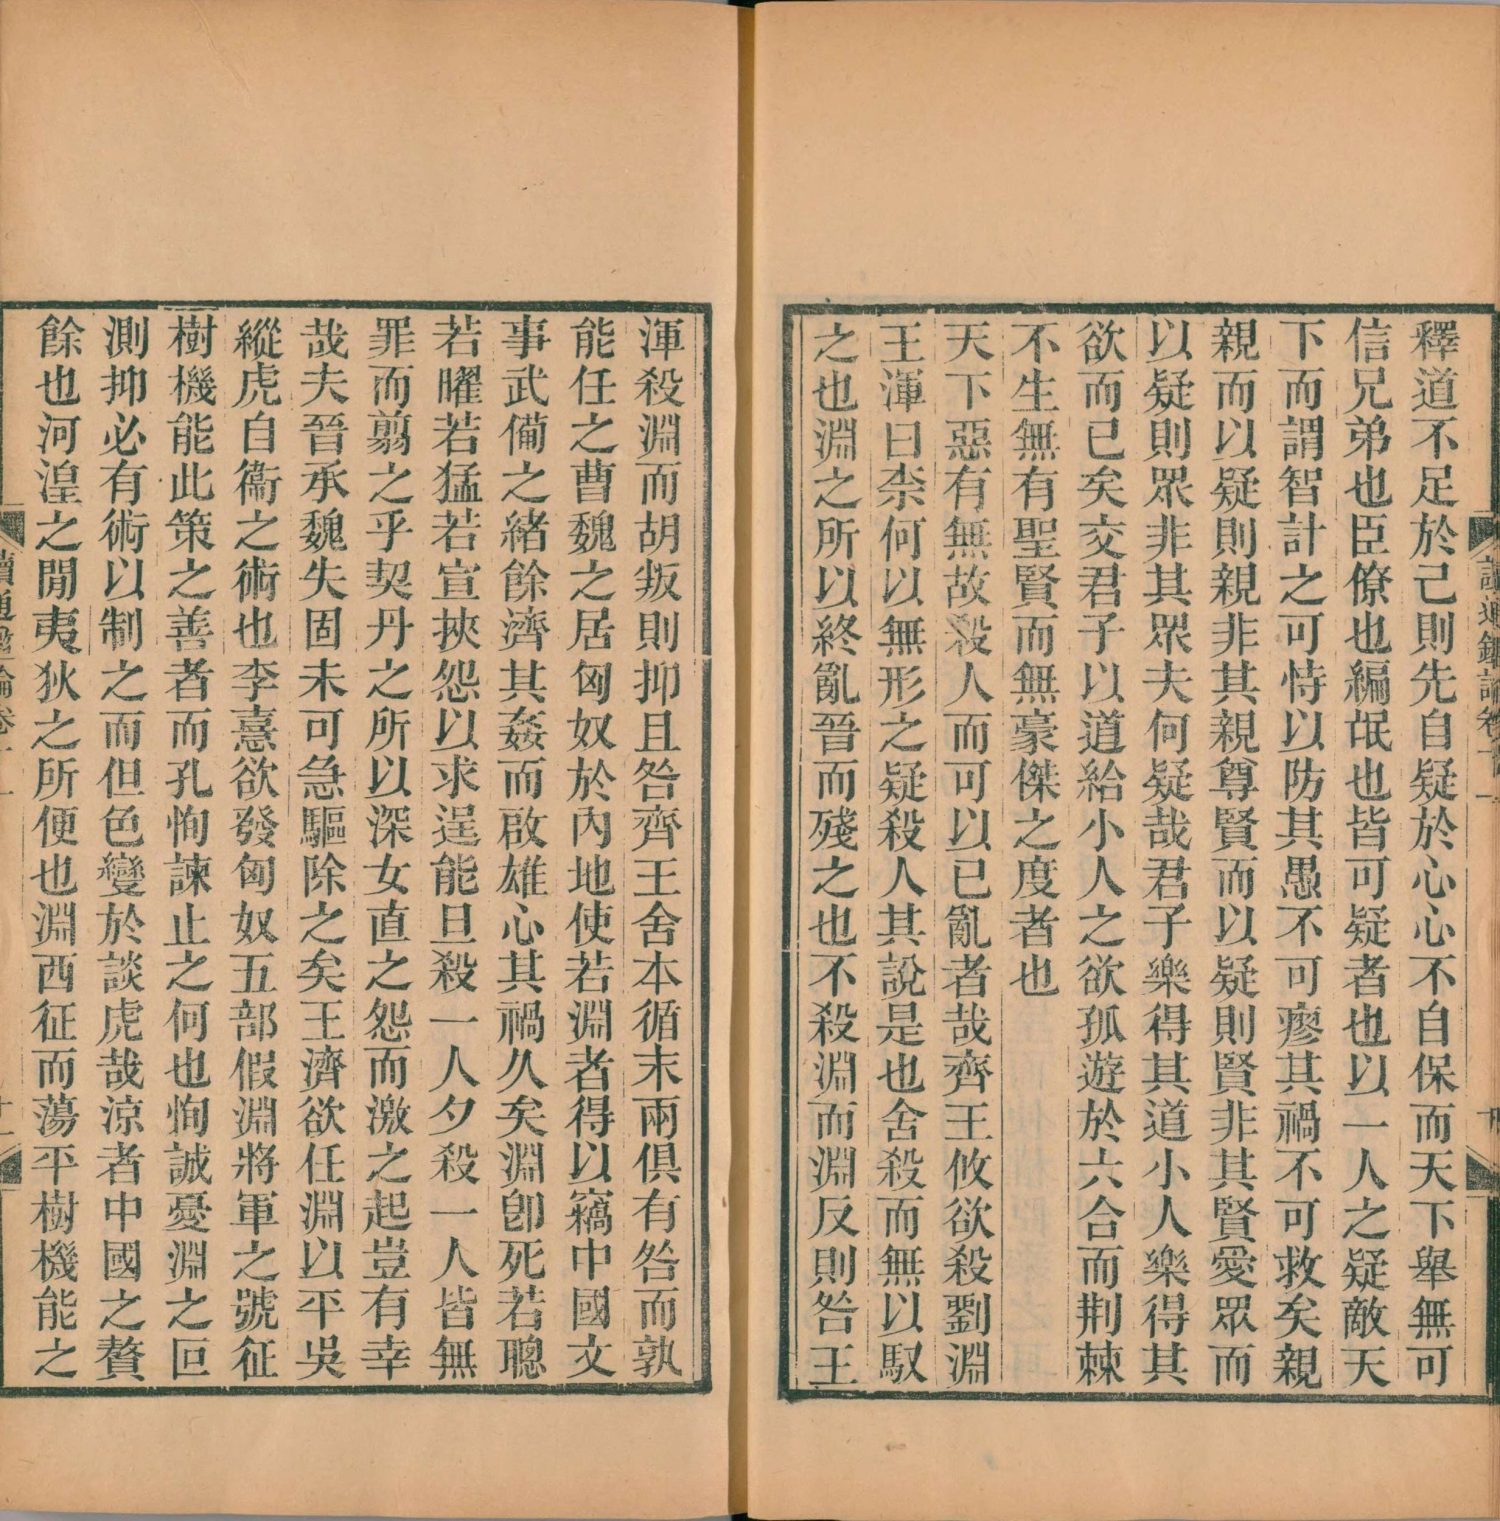 釋道不足於己則先自疑於心心不自保而天下舉無可
信兄弟也臣僚也編氓也皆可疑者也以一人之疑敵天
下而謂智計之可恃以防其愚不可瘳其禍不可救矣親
親而以疑則親非其親尊賢而以疑則賢非其賢愛眾而
以疑則眾非其眾夫何疑哉君子樂得其道小人樂得其
欲而已矣交君子以道給小人之欲孤遊於六合而荆棘
不生無有聖賢而無豪傑之度者也
天下惡有無故殺人而可以已亂者哉齊王攸欲殺劉淵
王渾曰柰何以無形之疑殺人其說是也舍殺而無以馭
之也淵之所以終亂晉而殘之也不殺淵而淵反則咎王
渾殺淵而胡叛則抑且咎齊王舍本循末兩俱有咎而孰
能任之曹魏之居匈奴於內地使若淵者得以竊中國文
事武備之緒餘濟其姦而啟雄心其禍久矣淵卽死若聰
若曜若猛若宣挾怨以求逞能旦殺一人夕殺一人皆無
罪而翦之乎契丹之所以深女直之怨而激之起豈有幸
哉夫晉承魏失固未可急驅除之矣王濟欲任淵以平吳
縱虎自衞之術也李憙欲發匈奴五部假淵將軍之號征
樹機能此策之善者而孔恂諫止之何也恂誠憂淵之叵
測抑必有術以制之而但色變於談虎哉涼者中國之贅
餘也河湟之閒夷狄之所便也淵西征而蕩平樹機能之
讀通鑑論卷十一
十一